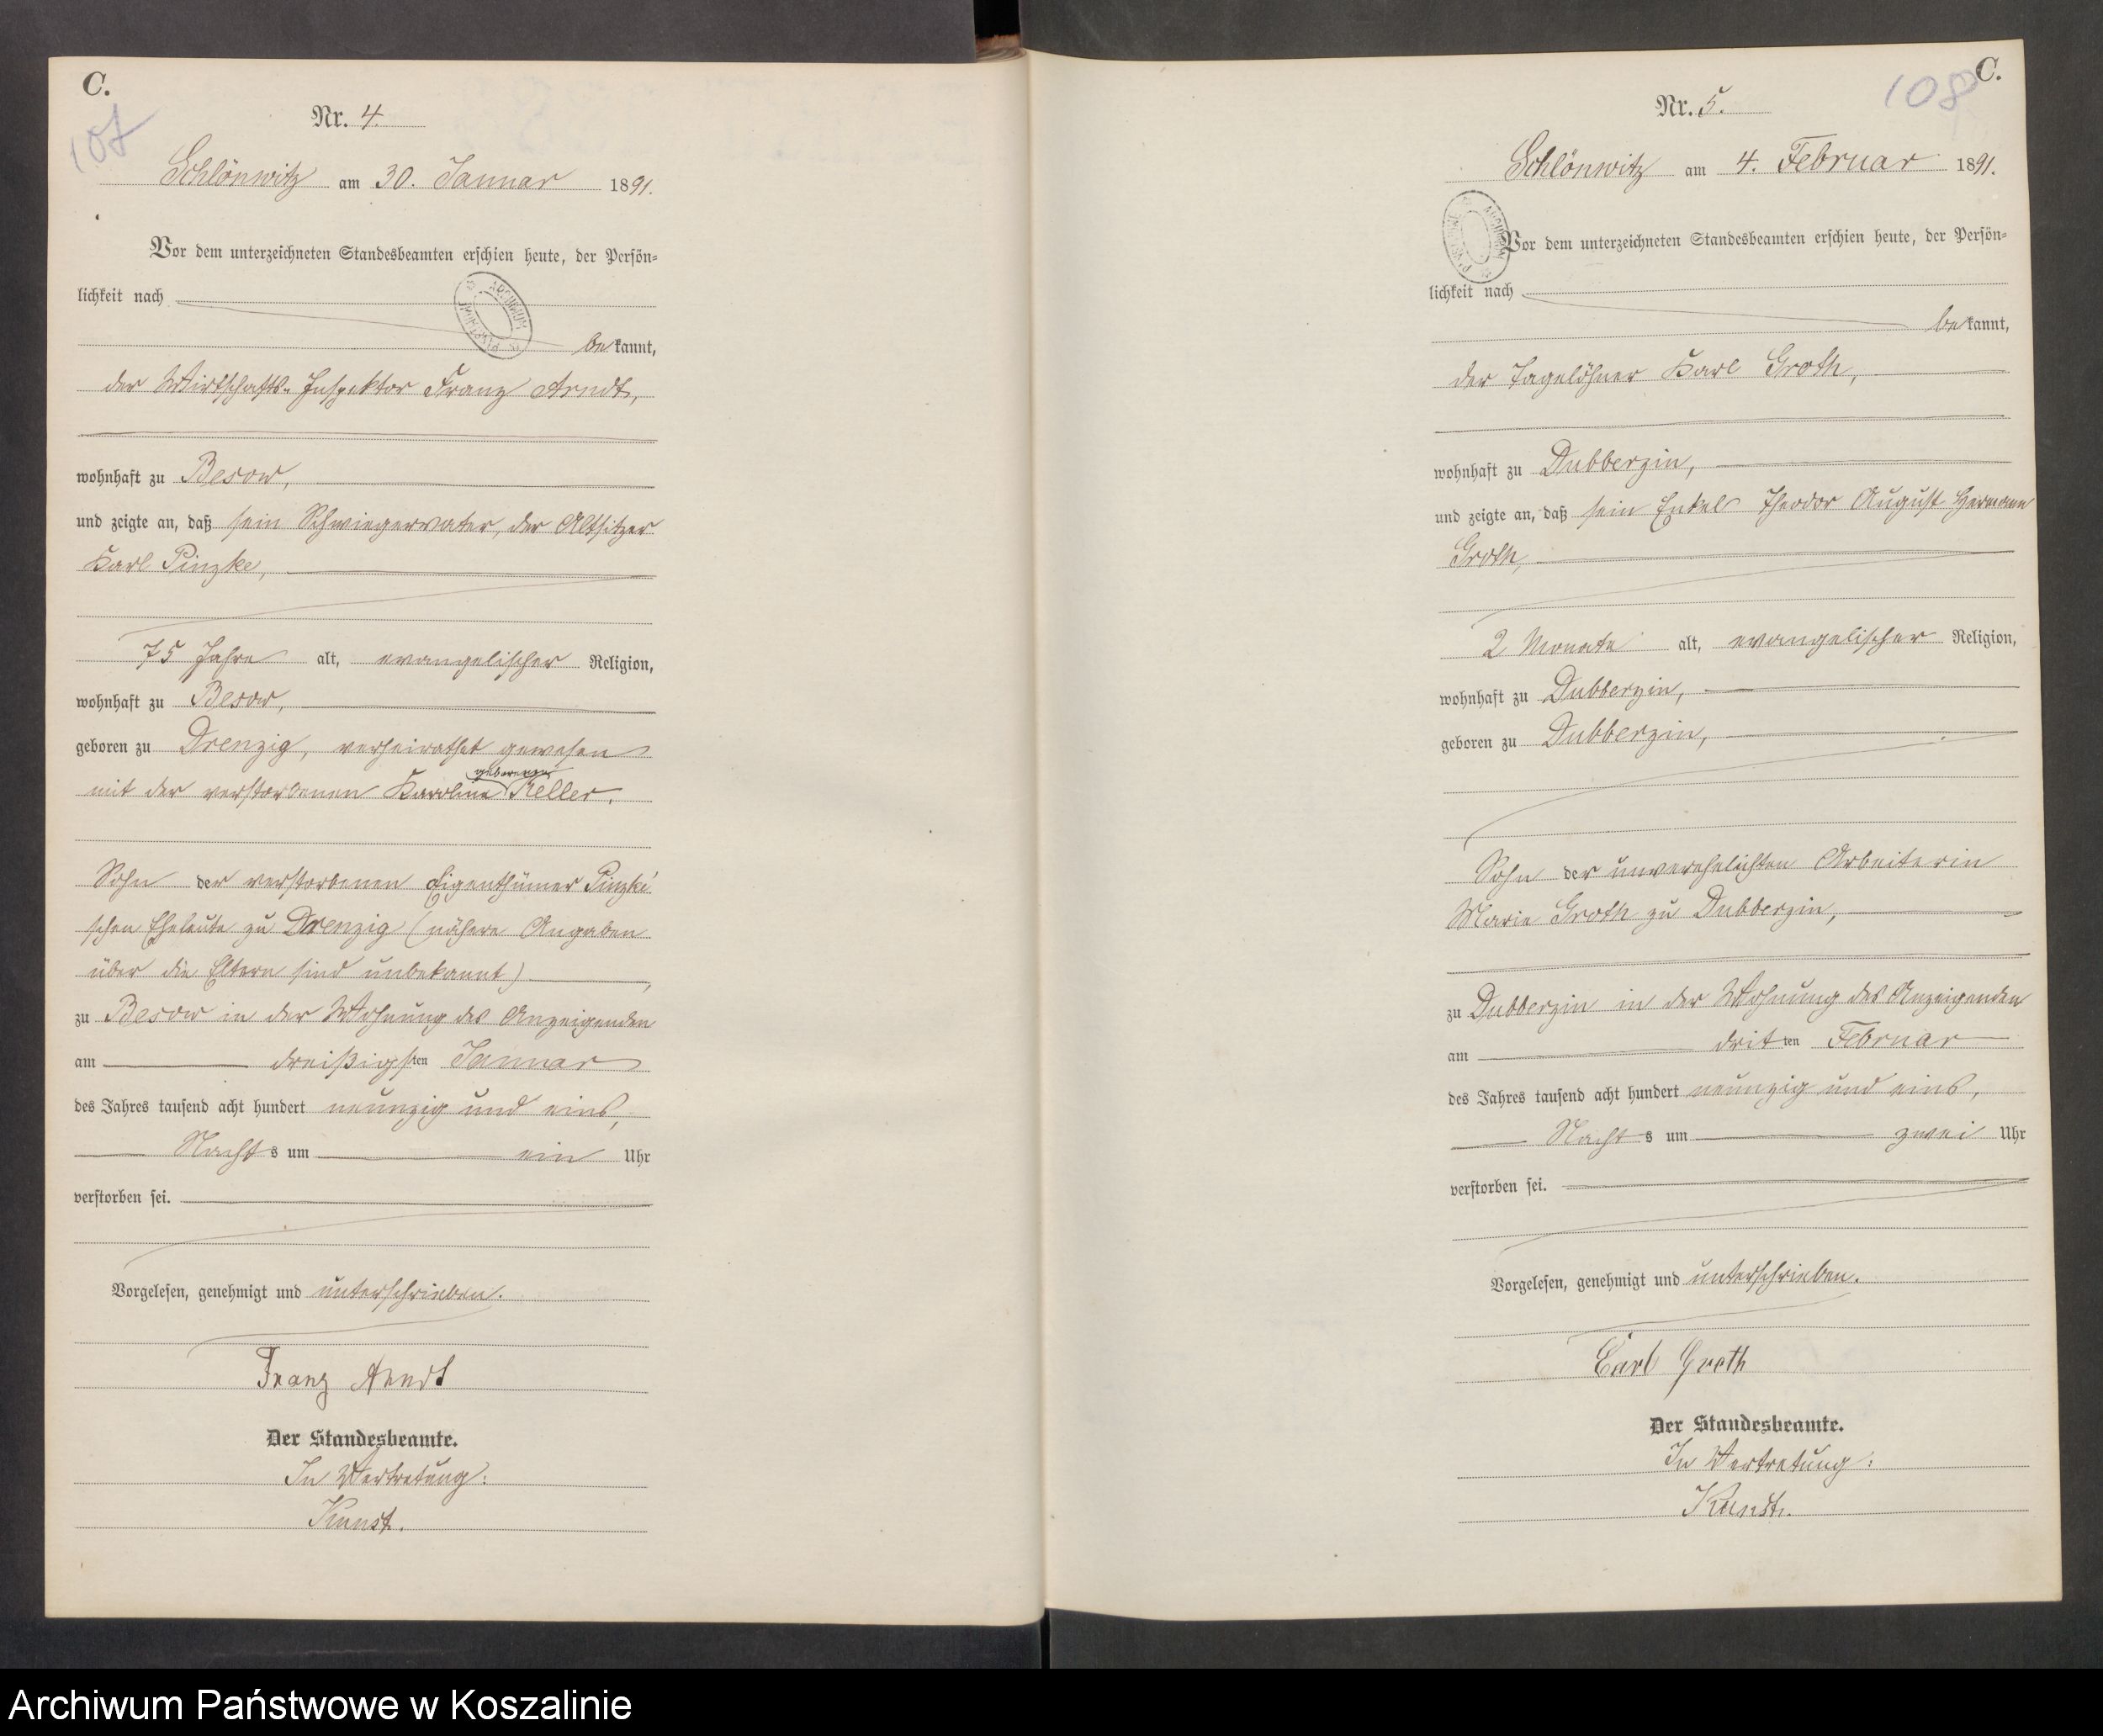 C.
107
Nr. 4.
Schlönwitz am 30. Januar 1891.
Vor dem unterzeichneten Standesbeamten erschien heute, der Persön-
lichkeit nach
bekannt,
der Wirtschafts-Inspektor Franz Arndt,
wohnhaft zu Besow,
und zeigte an, daß sein Schwiegervater, der Altsitzer
Karl Pinzke,
75 Jahre alt, evangelischer Religion,
wohnhaft zu Besow,
geboren zu Drenzig, verheirathet gewesen
mit der verstorbenen Karoline geborenen Keller.
Sohn der verstorbenen Eigenthümer Pinzke'
schen Eheleute zu Drenzig (nähere Angaben
über die Eltern sind unbekannt),
zu Besow in der Wohnung des Anzeigenden
am dreißigsten Januar
des Jahres tausend acht hundert neunzig und eins,
Nachts um ein Uhr
verstorben sei.
Vorgelesen, genehmigt und unterschrieben.
Franz Arndt
Der Standesbeamte.
In Vertretung:
Kunst.
C.
108
Nr. 5.
Schlönwitz am 4. Februar 1891.
Vor dem unterzeichneten Standesbeamten erschien heute, der Persön-
lichkeit nach
bekannt,
der Tagelöhner Karl Groth,
wohnhaft zu Dubberzin,
und zeigte an, daß sein Enkel Theodor August Hermann
Groth,
2 Monate alt, evangelischer Religion,
wohnhaft zu Dubberzin,
geboren zu Dubberzin,
Sohn der unverehelichten Arbeiterin
Marie Groth zu Dubberzin,
zu Dubberzin in der Wohnung des Anzeigenden
am dritten Februar
des Jahres tausend acht hundert neunzig und eins,
Nachts um zwei Uhr
verstorben sei.
Vorgelesen, genehmigt und unterschrieben.
Carl Groth
Der Standesbeamte.
In Vertretung:
Kunst.
Archiwum Państwowe w Koszalinie